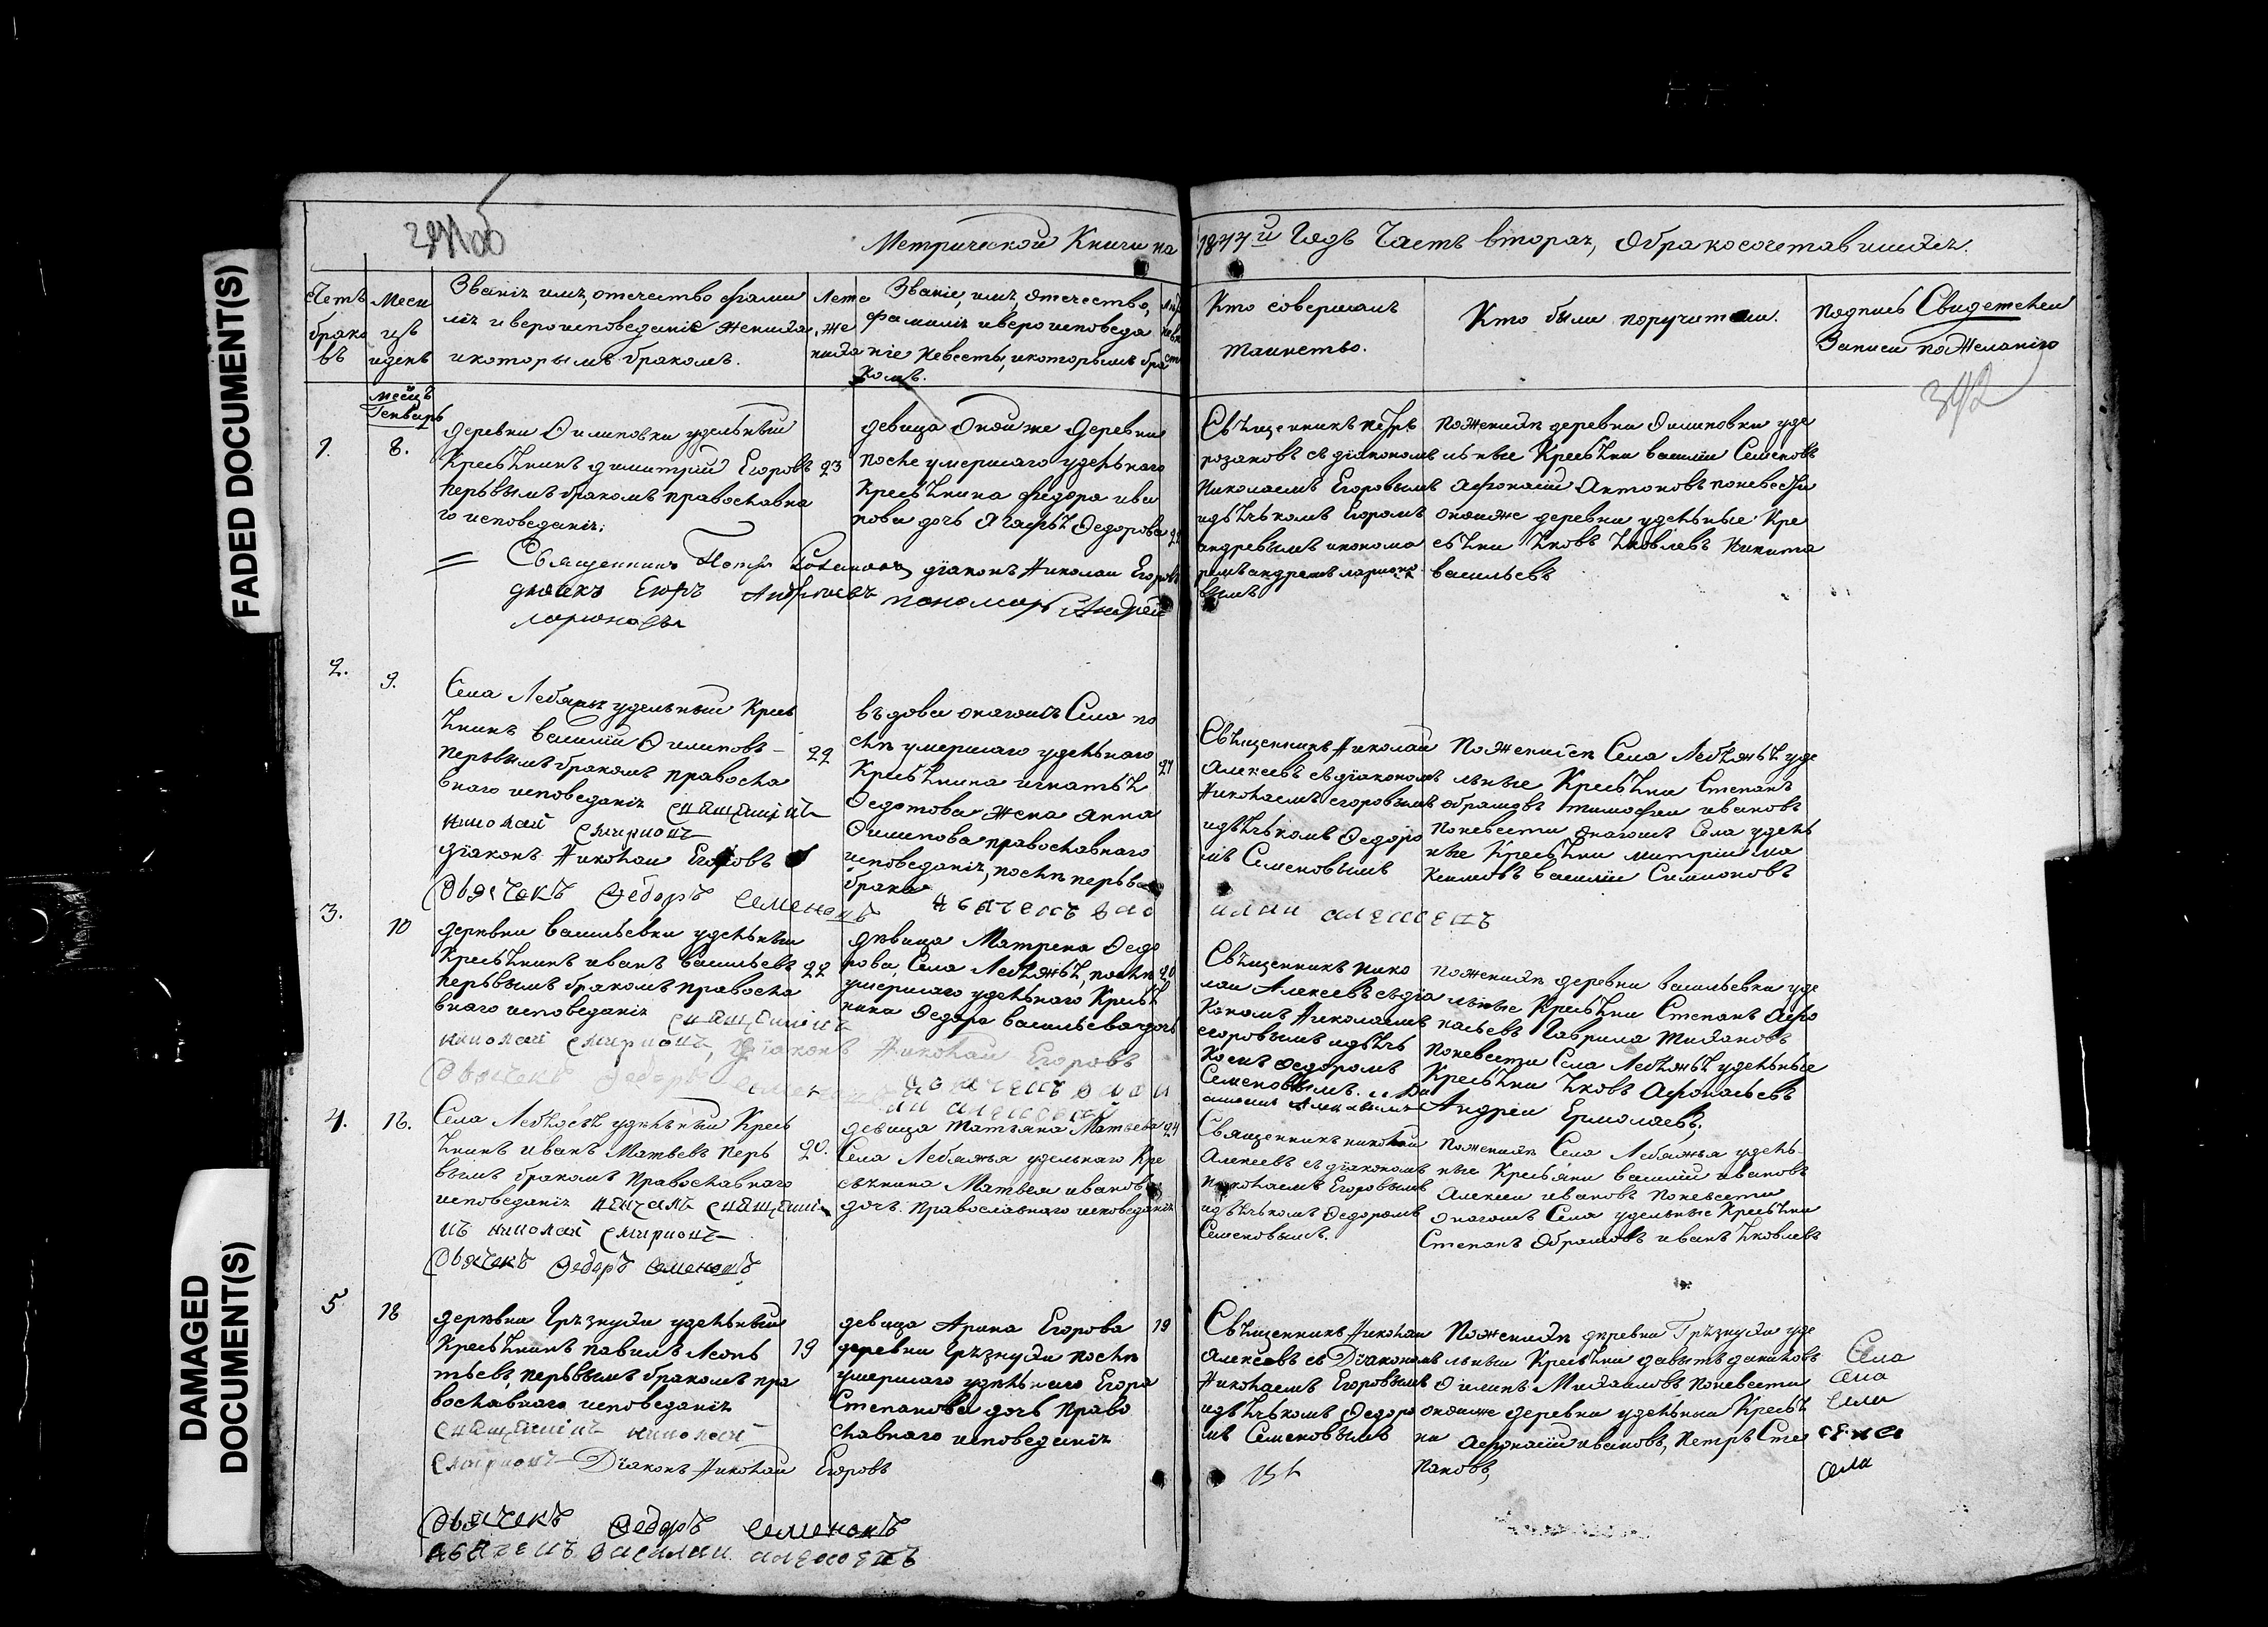 FADED DOCUMENT(S)
DAMAGED
DOCUMENT(S)
Метрической Книги на 1844й Годъ Часть вторая, О бракосочетавшихся.
Счетъ
брако
въ
Меся
цъ
и день
Званiя имя, отечество фами
лiя и вероисповеданiе жениха,
и которымъ бракомъ.
Лета
же
ниха
Званiе, имя, отечество,
фамилiя и вероисповеда
нiе невесты, и которымъ бра
комъ.
Кто совершалъ
таинство.
Кто были поручители.
Подпись Свидетелей
Записи по желанiю
342
месяцъ
Генварь
1.
8.
деревни Филиповки удельный
Кресьянинъ димитрiй Егоровъ
перьвымъ бракомъ православна
го исповеданiя.
23
девица оной же деревни
после умершаго удельнаго
Кресьянина федора ива
нова дочь Агафья Федорова
Священникъ петръ
розановъ съ дiакономъ
Николаемъ Егоровымъ
и дьячькомъ Егоромъ
андревымъ и понома
ремъ андреемъ ларионо
вымъ
по женихе деревни Филиповки уде
льные Кресьяни василiи Семеновъ
Афонасiи Антоновъ по невесте
оной же деревни удельные Кре
сьяни Яковъ Яковлевъ Никита
васильевъ
Священникъ Петръ Розановъ дiаконъ Николаи Егоровъ
дьячекъ Егоръ Андреевъ пономарь Андрей
ларионовъ
2.
9.
Села Лебяжья удельный Кресь
янинъ василiи Филиповъ
перьвымъ бракомъ правосла
внаго исповеданiя священникъ
николай смирновъ
дiаконъ Николаи Егоровъ
Дьячекъ Федоръ Семеновъ
22
въдова онагожъ Села по
сля умершаго удельнаго
Кресьянина игнатья
Федотова жена анна
Филипова православнаго
исповеданiя, после перьва
брака
27
Священникъ Николай
Алексевъ съ дiакономъ
Николаемъ егоровымъ
и дьячькомъ Федоро
мъ Семеновымъ
По женихе Села Лебяжья уде
льные Кресьяни Степанъ
обрамовъ тимофеи ивановъ
По невести онагожъ Села удель
ные Кресьяни митрiи ма
ксимовъ василiи Симионовъ
3.
10
деревни васильевки удельный
Кресьянинъ иванъ васильевъ
перьвымъ бракомъ правосла
внаго исповеданiя священникъ
николай смирновъ, Дiаконъ Николаи Егоровъ
Дьячекъ Федоръ Семеновъ
22
девица Матрена Федо
рова, Села Лебяжья, после
умершаго удельнаго Кресья
нина Федора васильева дочь
20
Священникъ Нико
лаи Алексевъ съ дiа
кономъ Николаемъ
егоровымъ и дьячь
комъ Федоромъ
Семеновымъ.
по женихе деревни васильевки уде
льные Кресьяни Степанъ Афо
насьевъ Гаврила Тихановъ
По невести Села Лебяжья удельные
Кресьяни Яковъ Афонасьевъ
Андреи Ермолаевъ.
4.
Села Лебяжья удельный Кресь
янинъ иванъ Матвевъ перь
вымъ бракомъ Православнаго
исповеданiя венчалъ священни
къ николай смирновъ
Дьячекъ Федоръ Семеновъ
20.
девица татьяна Матвева
Села Лебяжья удельнаго Кре
сьянина Матвея иванова
дочь. Православнаго исповеданiя
Священникъ николаи
Алексевъ съ дiакономъ
Николаемъ Егоровымъ
и дьячькомъ Федоромъ
Семеновымъ.
По женихе Села Лебяжья удель
ные Кресьяни василiи ивановъ
Алексеи ивановъ По невести
онагожъ Села удельные Кресьяни
Степанъ Обрамовъ иванъ Яковлевъ
5
18
деревни Грязнухи удельный
Кресьянинъ павилъ Леонь
тьевъ, перьвымъ бракомъ пра
вославнаго исповеданiя
священникъ николай
смирновъ Дiаконъ Николаи Егоровъ
Дьячекъ Федоръ Семеновъ
19
девица Арина Егорова
деревни Грязнухи после
умершаго удельнаго Егора
Степанова дочь Право
славнаго исповеданiя
19
Священникъ Николаи
Алексевъ съ Дiакономъ
Николаемъ Егоровымъ
и дьячькомъ Федоро
мъ Семеновымъ
По женихе деревни Грязнухи уде
льныи Кресьяни давыдъ даниловъ
Филипъ Михаиловъ По невести
оной же деревни удельныи Кресья
ни Афонасiи ивановъ, Петръ Сте
пановъ,
Села